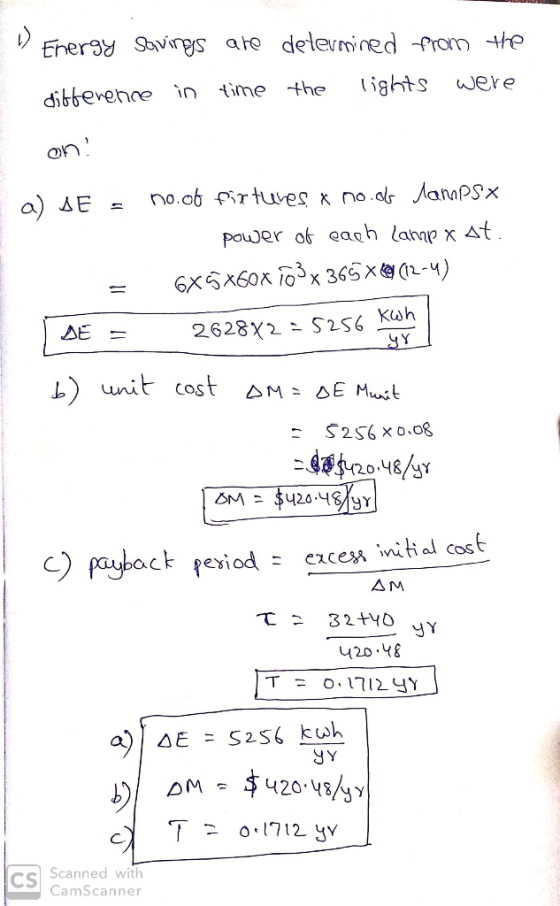 1) Energy Savings are determined from the
difference in time the lights were
on:
a) ΔE = no.of fixtures x no.of lamps x
power of each lamp x Δt.
= 6x5x60x10^-3 x 365x(12-4)
ΔE = 2628x2 = 5256 kwh/yr
b) unit cost ΔM = ΔE Munit
= 5256x0.08
= $420.48/yr
ΔM = $420.48/yr
c) payback period = excess initial cost
ΔM
T = 32+40 yr
420.48
T = 0.1712 yr
a) ΔE = 5256 kwh/yr
b) ΔM = $420.48/yr
c) T = 0.1712 yr
CS Scanned with
CamScanner